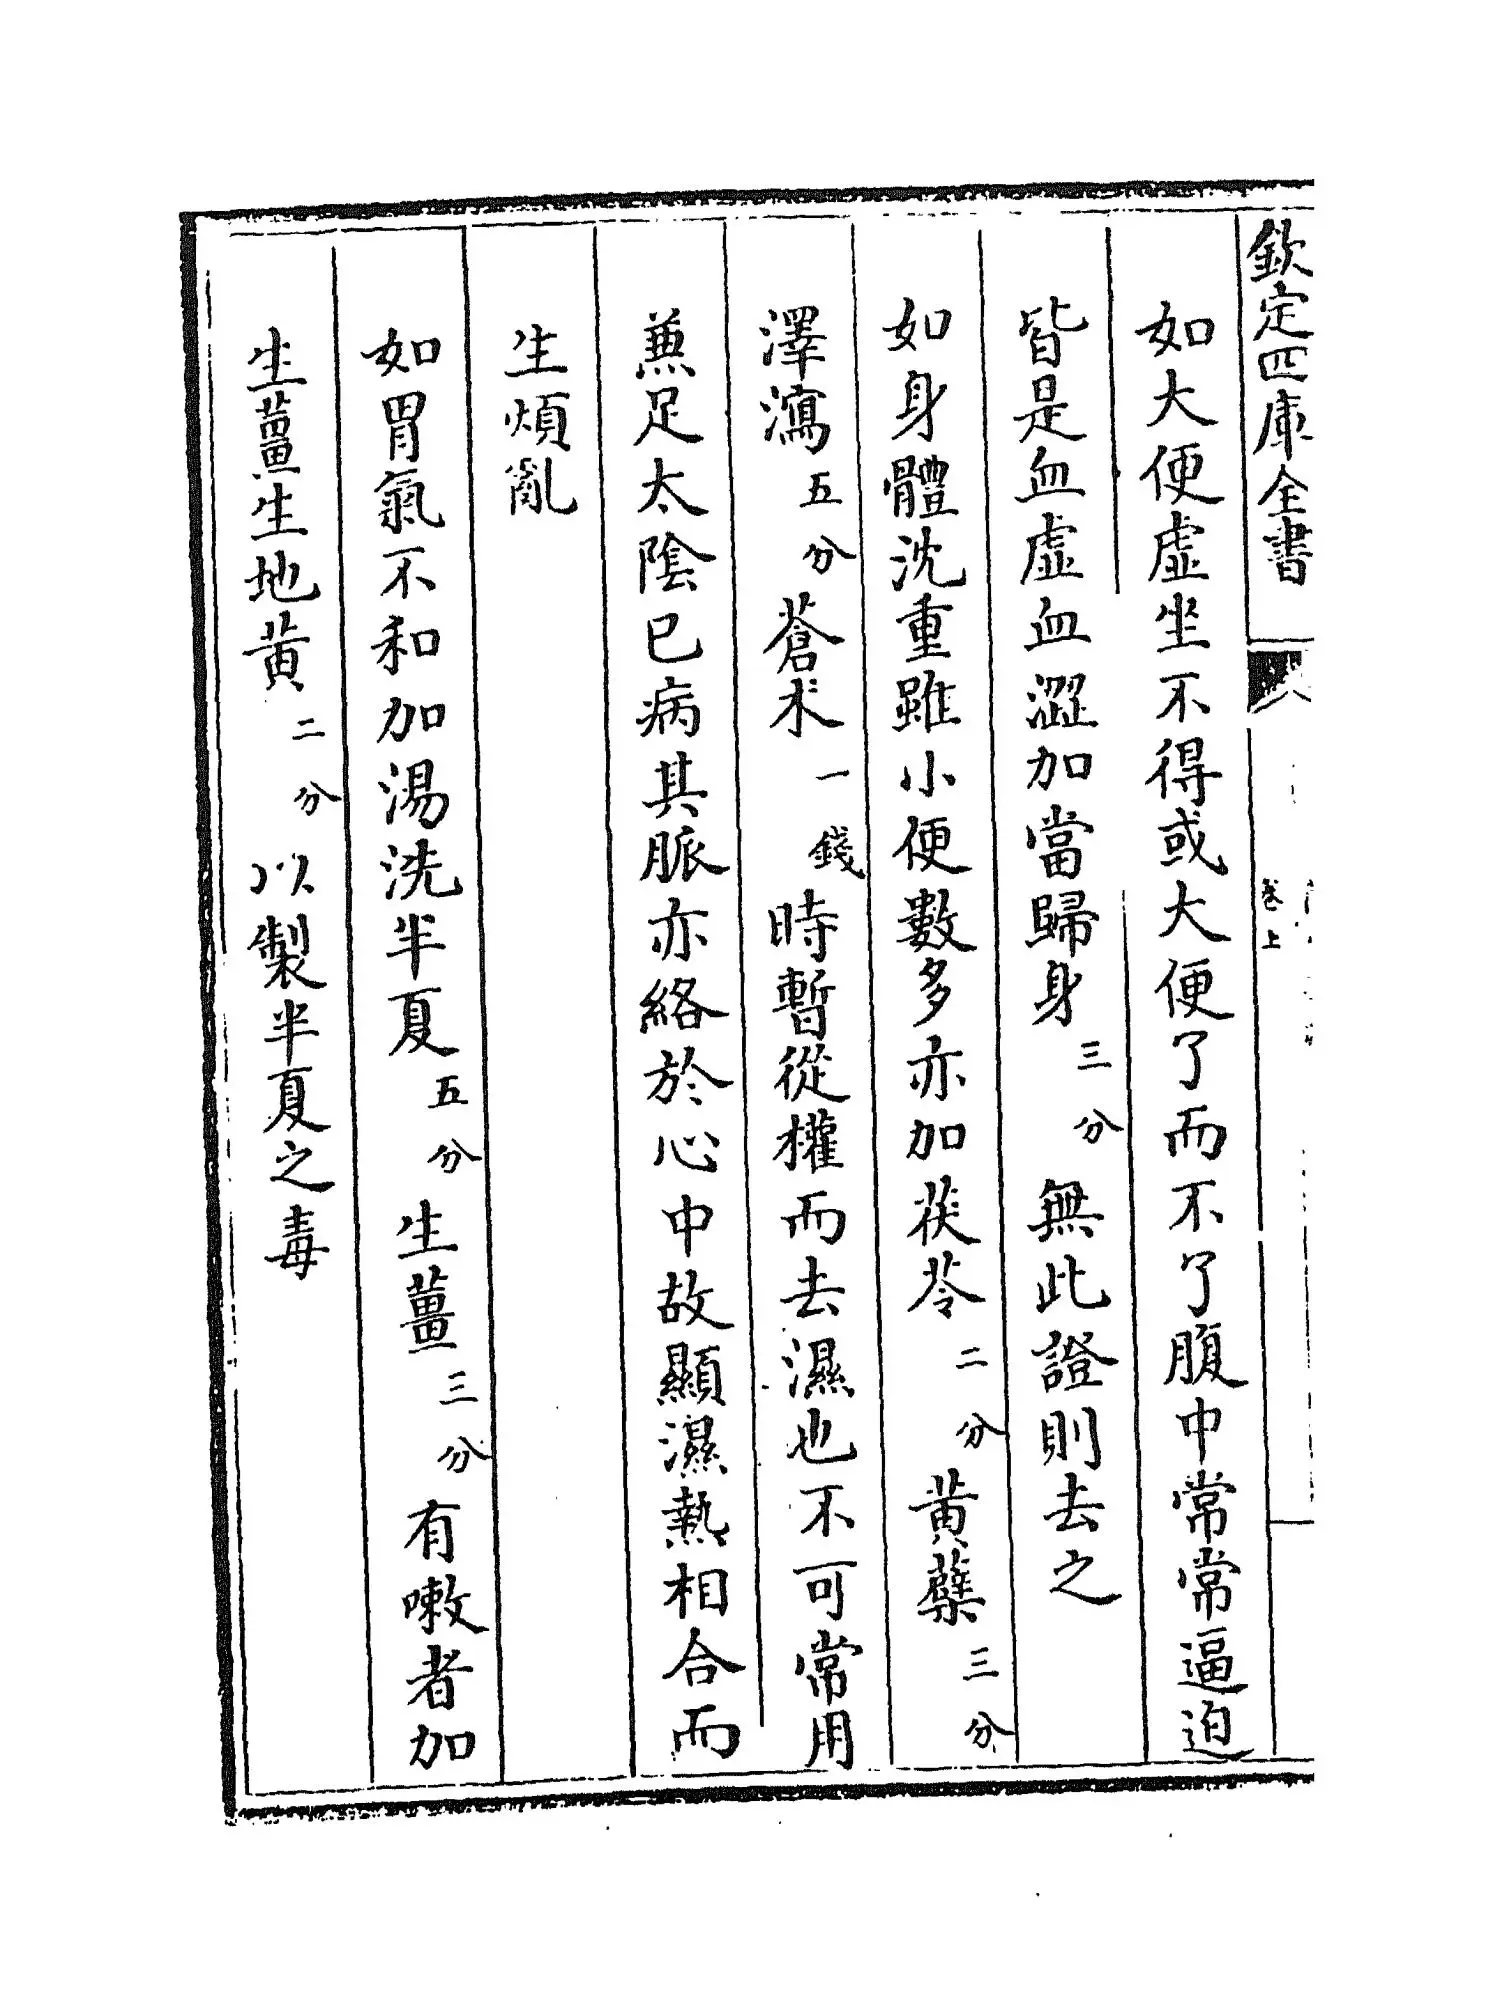 欽定四庫全書
卷上
如大便虛坐不得或大便了而不了腹中常常逼迫
皆是血虛血澀加當歸身三分無此證則去之
如身體沈重雖小便數多亦加茯苓二分黃蘗三分
澤瀉五分蒼朮一錢時暫從權而去濕也不可常用
兼足太陰已病其脈亦絡於心中故顯濕熱相合而
生煩亂
如胃氣不和加湯洗半夏五分生薑三分有嗽者加
生薑生地黃二分以製半夏之毒